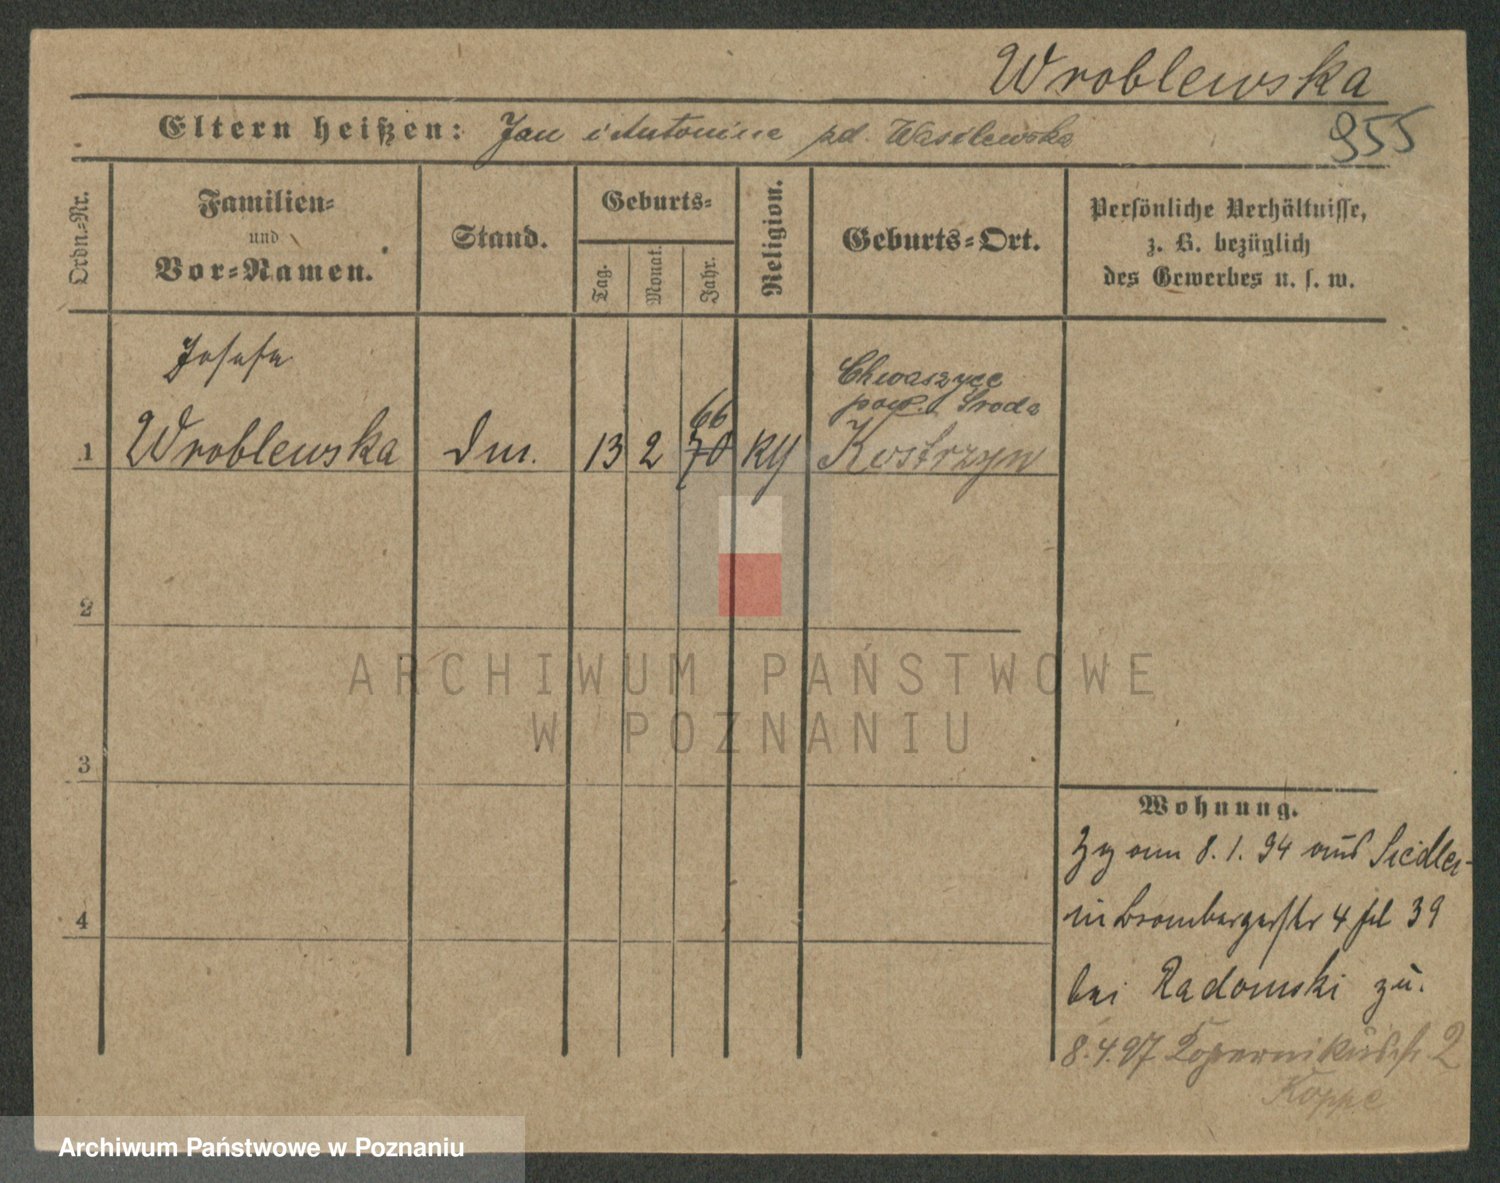 Wroblewska
Eltern heißen: Jan i Antonina zd. Wasilewska
955
Ordn.-Nr.
Familien-
und
Vor-Namen.
Stand.
Geburts-
Tag.
Monat.
Jahr.
Religion.
Geburts-Ort.
Persönliche Verhältnisse,
z. B. bezüglich
des Gewerbes u. s. w.
Josefa
Chwaszyce
pow. Sroda
66
1 Wroblewska Dm. 13 2 70 Kth Kostrzyn
2
3
4
Wohnung.
Zg am 8. 1. 94 aus Siedlec
in Brombergerstr 4 fol 39
bei Radomski zu.
8.4.97 Kopernikusstr 2
Koppe
ARCHIWUM PAŃSTWOWE
W POZNANIU
Archiwum Państwowe w Poznaniu